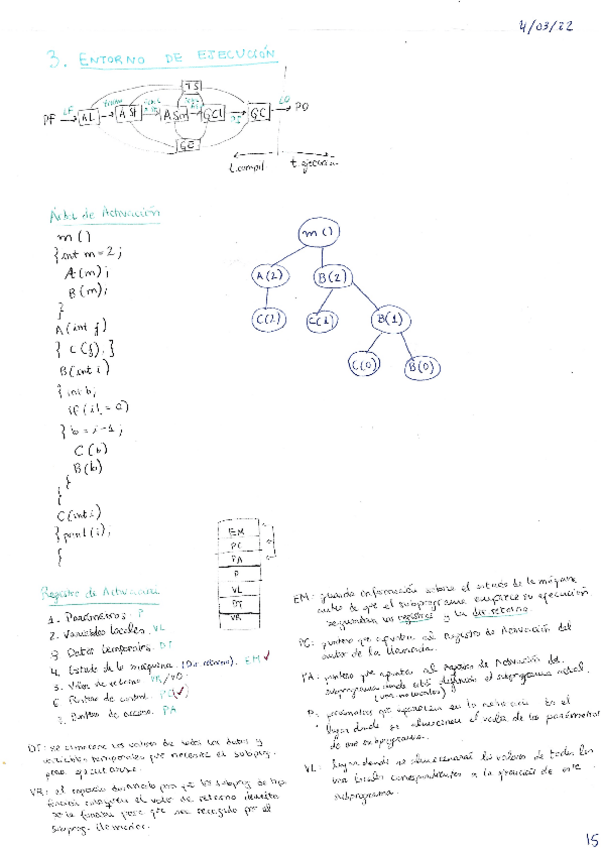 4/03/22
3. ENTORNO DE EJECUCIÓN
TS
PF LF AL ASt ASm GCI GC LO PO
GE
t. compil t. ejecución
Árbol de Activación
m()
{int m=2;
A(m);
B(m);
}
A(int j)
{ C(j). }
B(int i)
{ int b;
if(i!=0)
} b=i-1;
C(b)
B(b)
}
C(int i)
} print(i);
{
m()
A(2) B(2)
C(2) C(1) B(1)
C(0) B(0)
EM
PC
PA
P
VL
DT
VR
Registro de Activación
1. Parámetros. P
2. Variables locales. VL
3. Datos temporales. DT
4. Estado de la máquina. (Dir retorno). EM ✓
5. Valor de retorno VR
6. Puntero de control. PC ✓
7. Puntero de acceso. PA
DT: se almacenan los valores de todos los datos y
variables temporales que necesite el subprog.
para ejecutarse.
VR: el espacio para que los subprog. de tipo
función el valor de retorno
de la función para que sea recogido por el
subprog. llamador.
EM: guarda información sobre el estado de la máquina
antes de que el subprograma empiece su ejecución
se guardan los registros y la dir retorno.
PC: puntero que apunta al Registro de Activación del
autor de la llamada.
PA: puntero que apunta al Registro de Activación del
subprograma donde está definido el subprograma actual.
P: parámetros que aparecen en la Es el
lugar donde se almacenan el valor de los parámetros
de ese subprograma.
VL: lugar donde se almacenarán los valores de todas las
var locales correspondientes a la de este
subprograma.
15